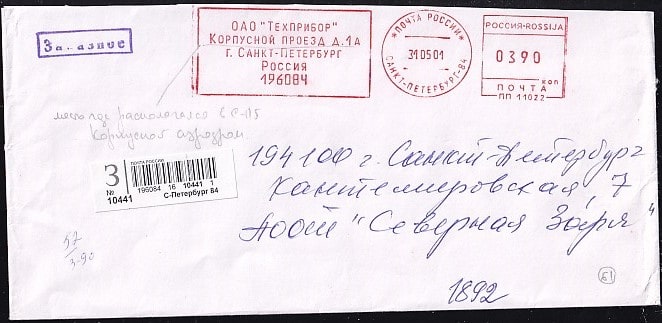 Заказное
ОАО "Техприбор"
Корпусной проезд д.1а
г. Санкт-Петербург
Россия
196084
*ПОЧТА РОССИИ*
31 05 01
САНКТ-ПЕТЕРБУРГ-84
РОССИЯ-ROSSIJA
0390
коп
ПОЧТА
ПП 11022
место где располагался в С-Пб
Корпусной аэродром
ПОЧТА РОССИИ
З
№
10441
196084 16 10441 1
С-Петербург 84
194100 г. Санкт-Петербург
Кантемировская, 7
АООТ "Северная Заря"
57
3-90
1892
61